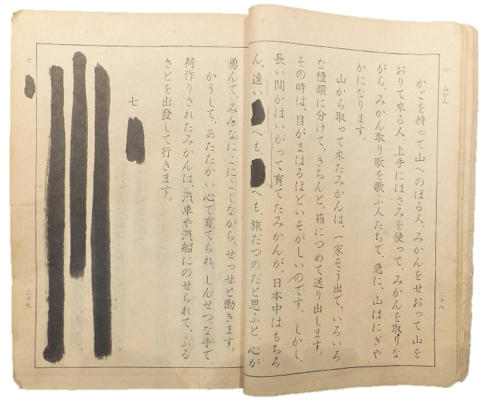 六 みかん 二十八
かごを持って山へのぼる人、みかんをせおって山を
おりて来る人、上手にはさみを使って、みかんを取りな
がら、みかん取り歌を歌ふ人たちで、急に、山はにぎや
かになります。
山から取って来たみかんは、一家そう出で、いろいろ
な種類に分けて、きちんと、箱につめて送り出します。
その時は、目がまはるほどいそがしいのです。しかし、
長い間かはいがって育てたみかんが、日本中はもちろ
ん、遠い へも、 へも、旅だつのだと思ふと、心が
勇んで、みんなにこにこしながら、せっせと働きます。
かうして、あたたかい心で育てられ、しんせつな手で、
荷作りされたみかんは、汽車や汽船にのせられて、ふる
さとを出發して行きます。
七
七 二十九